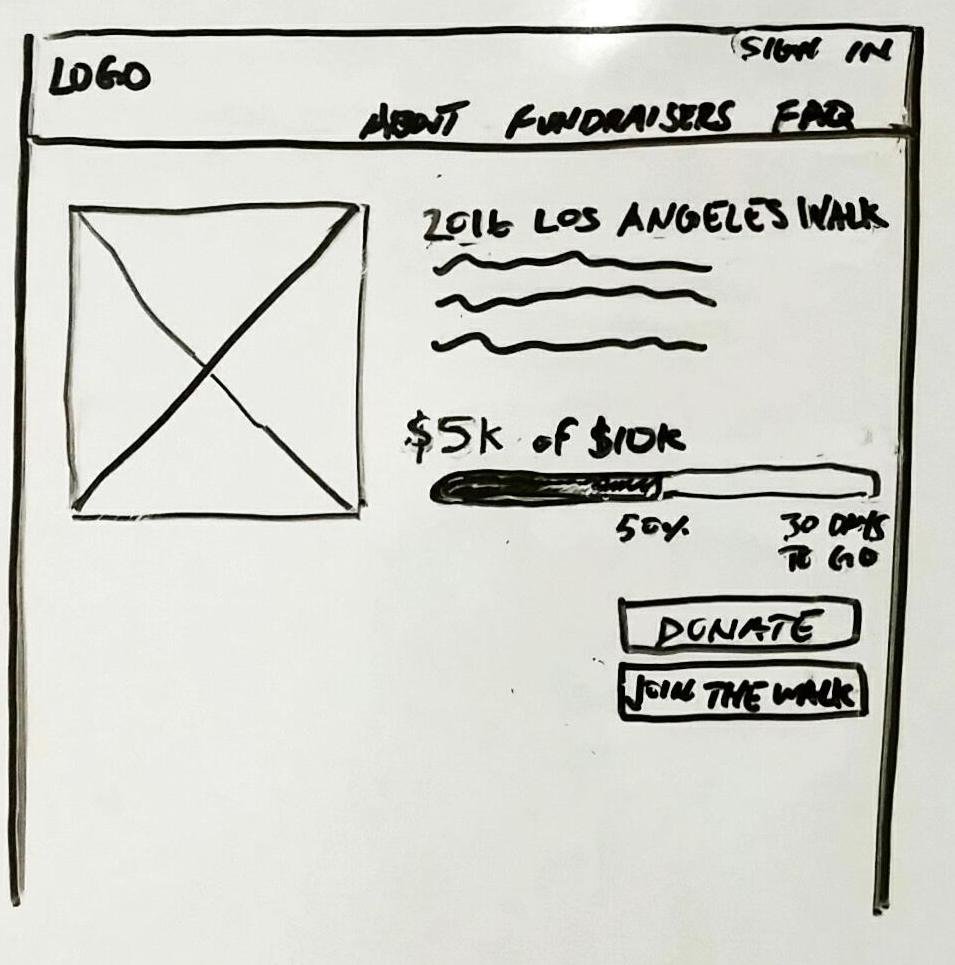 SIGN IN
LOGO
ABOUT FUNDRAISERS FAQ
2016 LOS ANGELES WALK
$5K of $10K
50%
30 DAYS
TO GO
DONATE
JOIN THE WALK